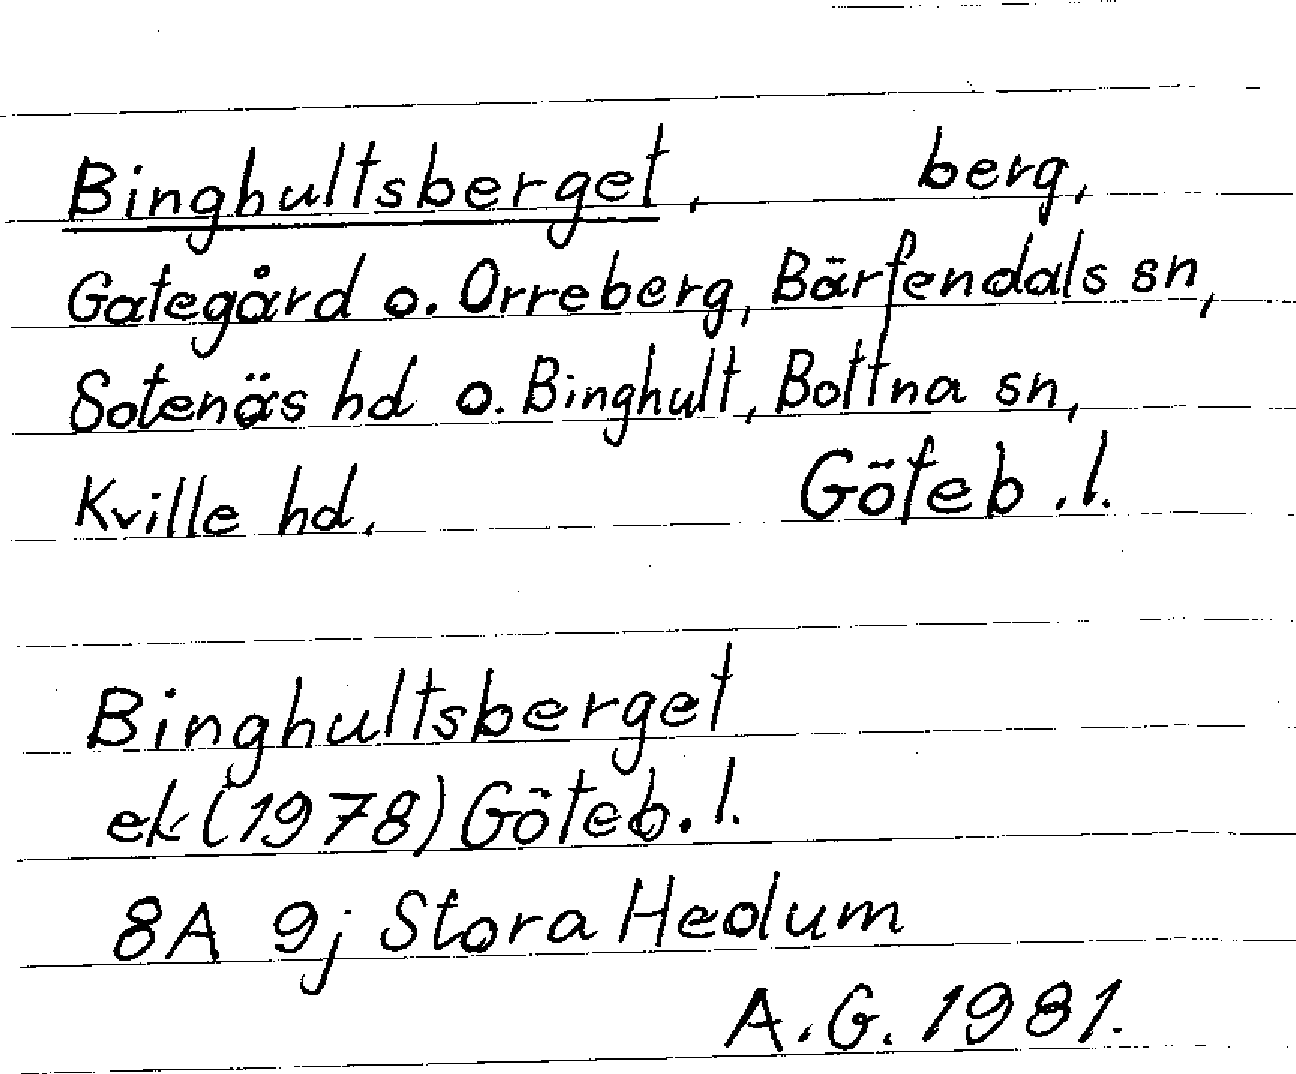 Binghultsberget, berg,
Gategård o. Orreberg, Bärfendals sn,
Sotenäs hd o. Binghult, Bottna sn,
Kville hd. Göteb.l.
Binghultsberget
ek (1978) Göteb.l.
8A 9j Stora Hedum
A.G. 1981.